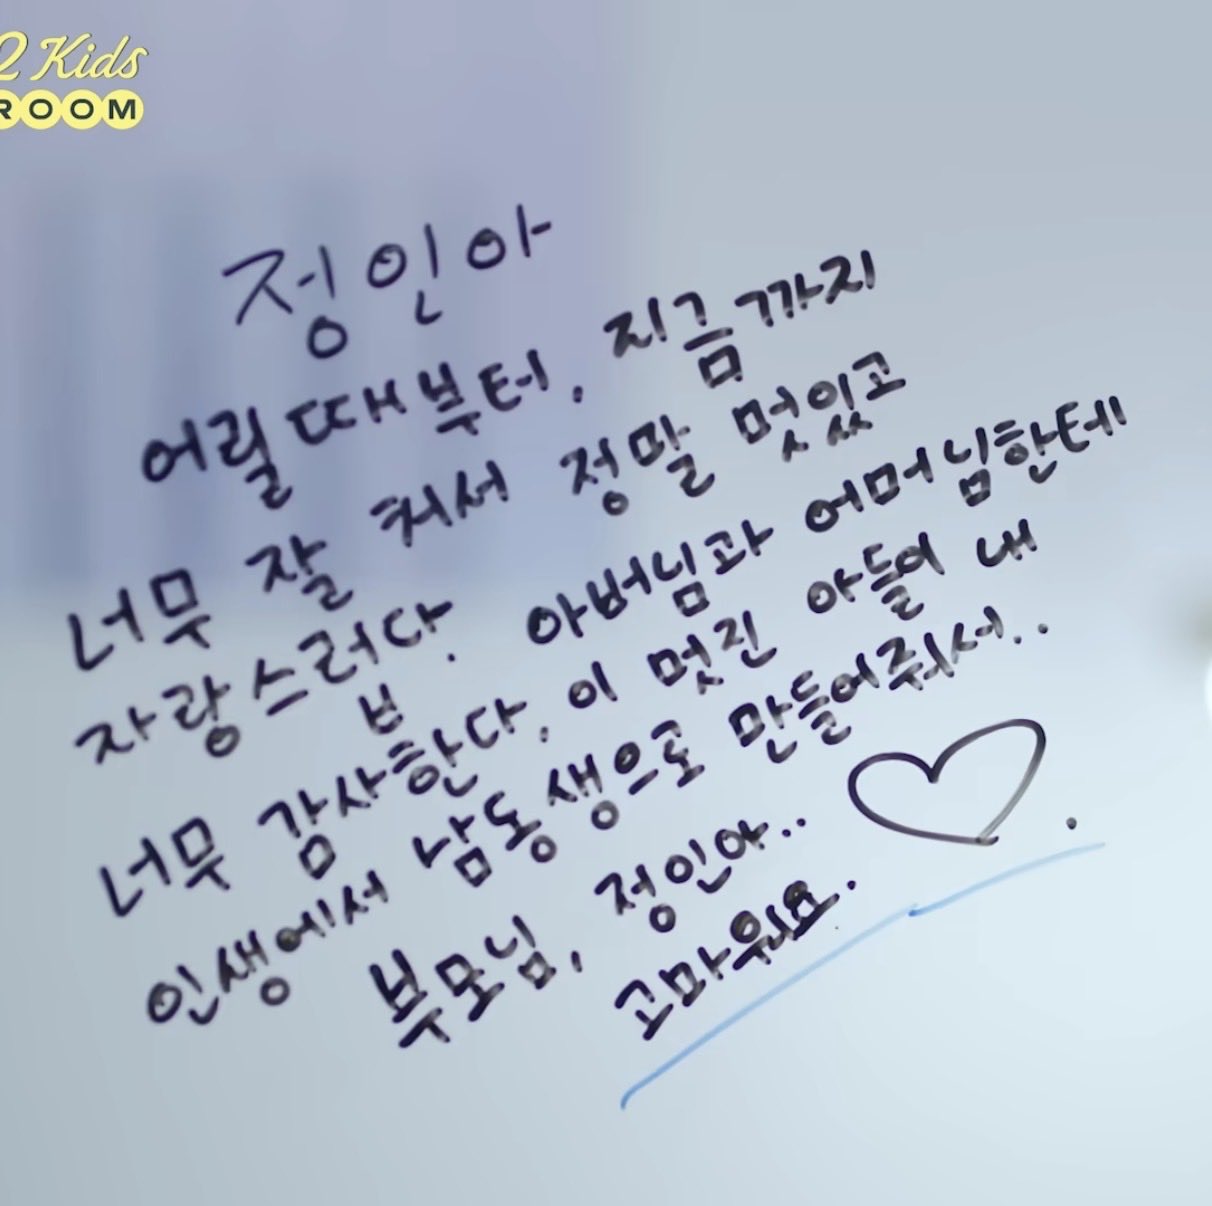 2 Kids
ROOM
정인아
어릴때부터, 지금까지
너무 잘 커서 정말 멋있고
자랑스럽다. 아버님과 어머님한테
너무 감사한다. 이 멋진 아들이 내
인생에서 남동생으로 만들어줘서..
부모님, 정인아..
고마워요.